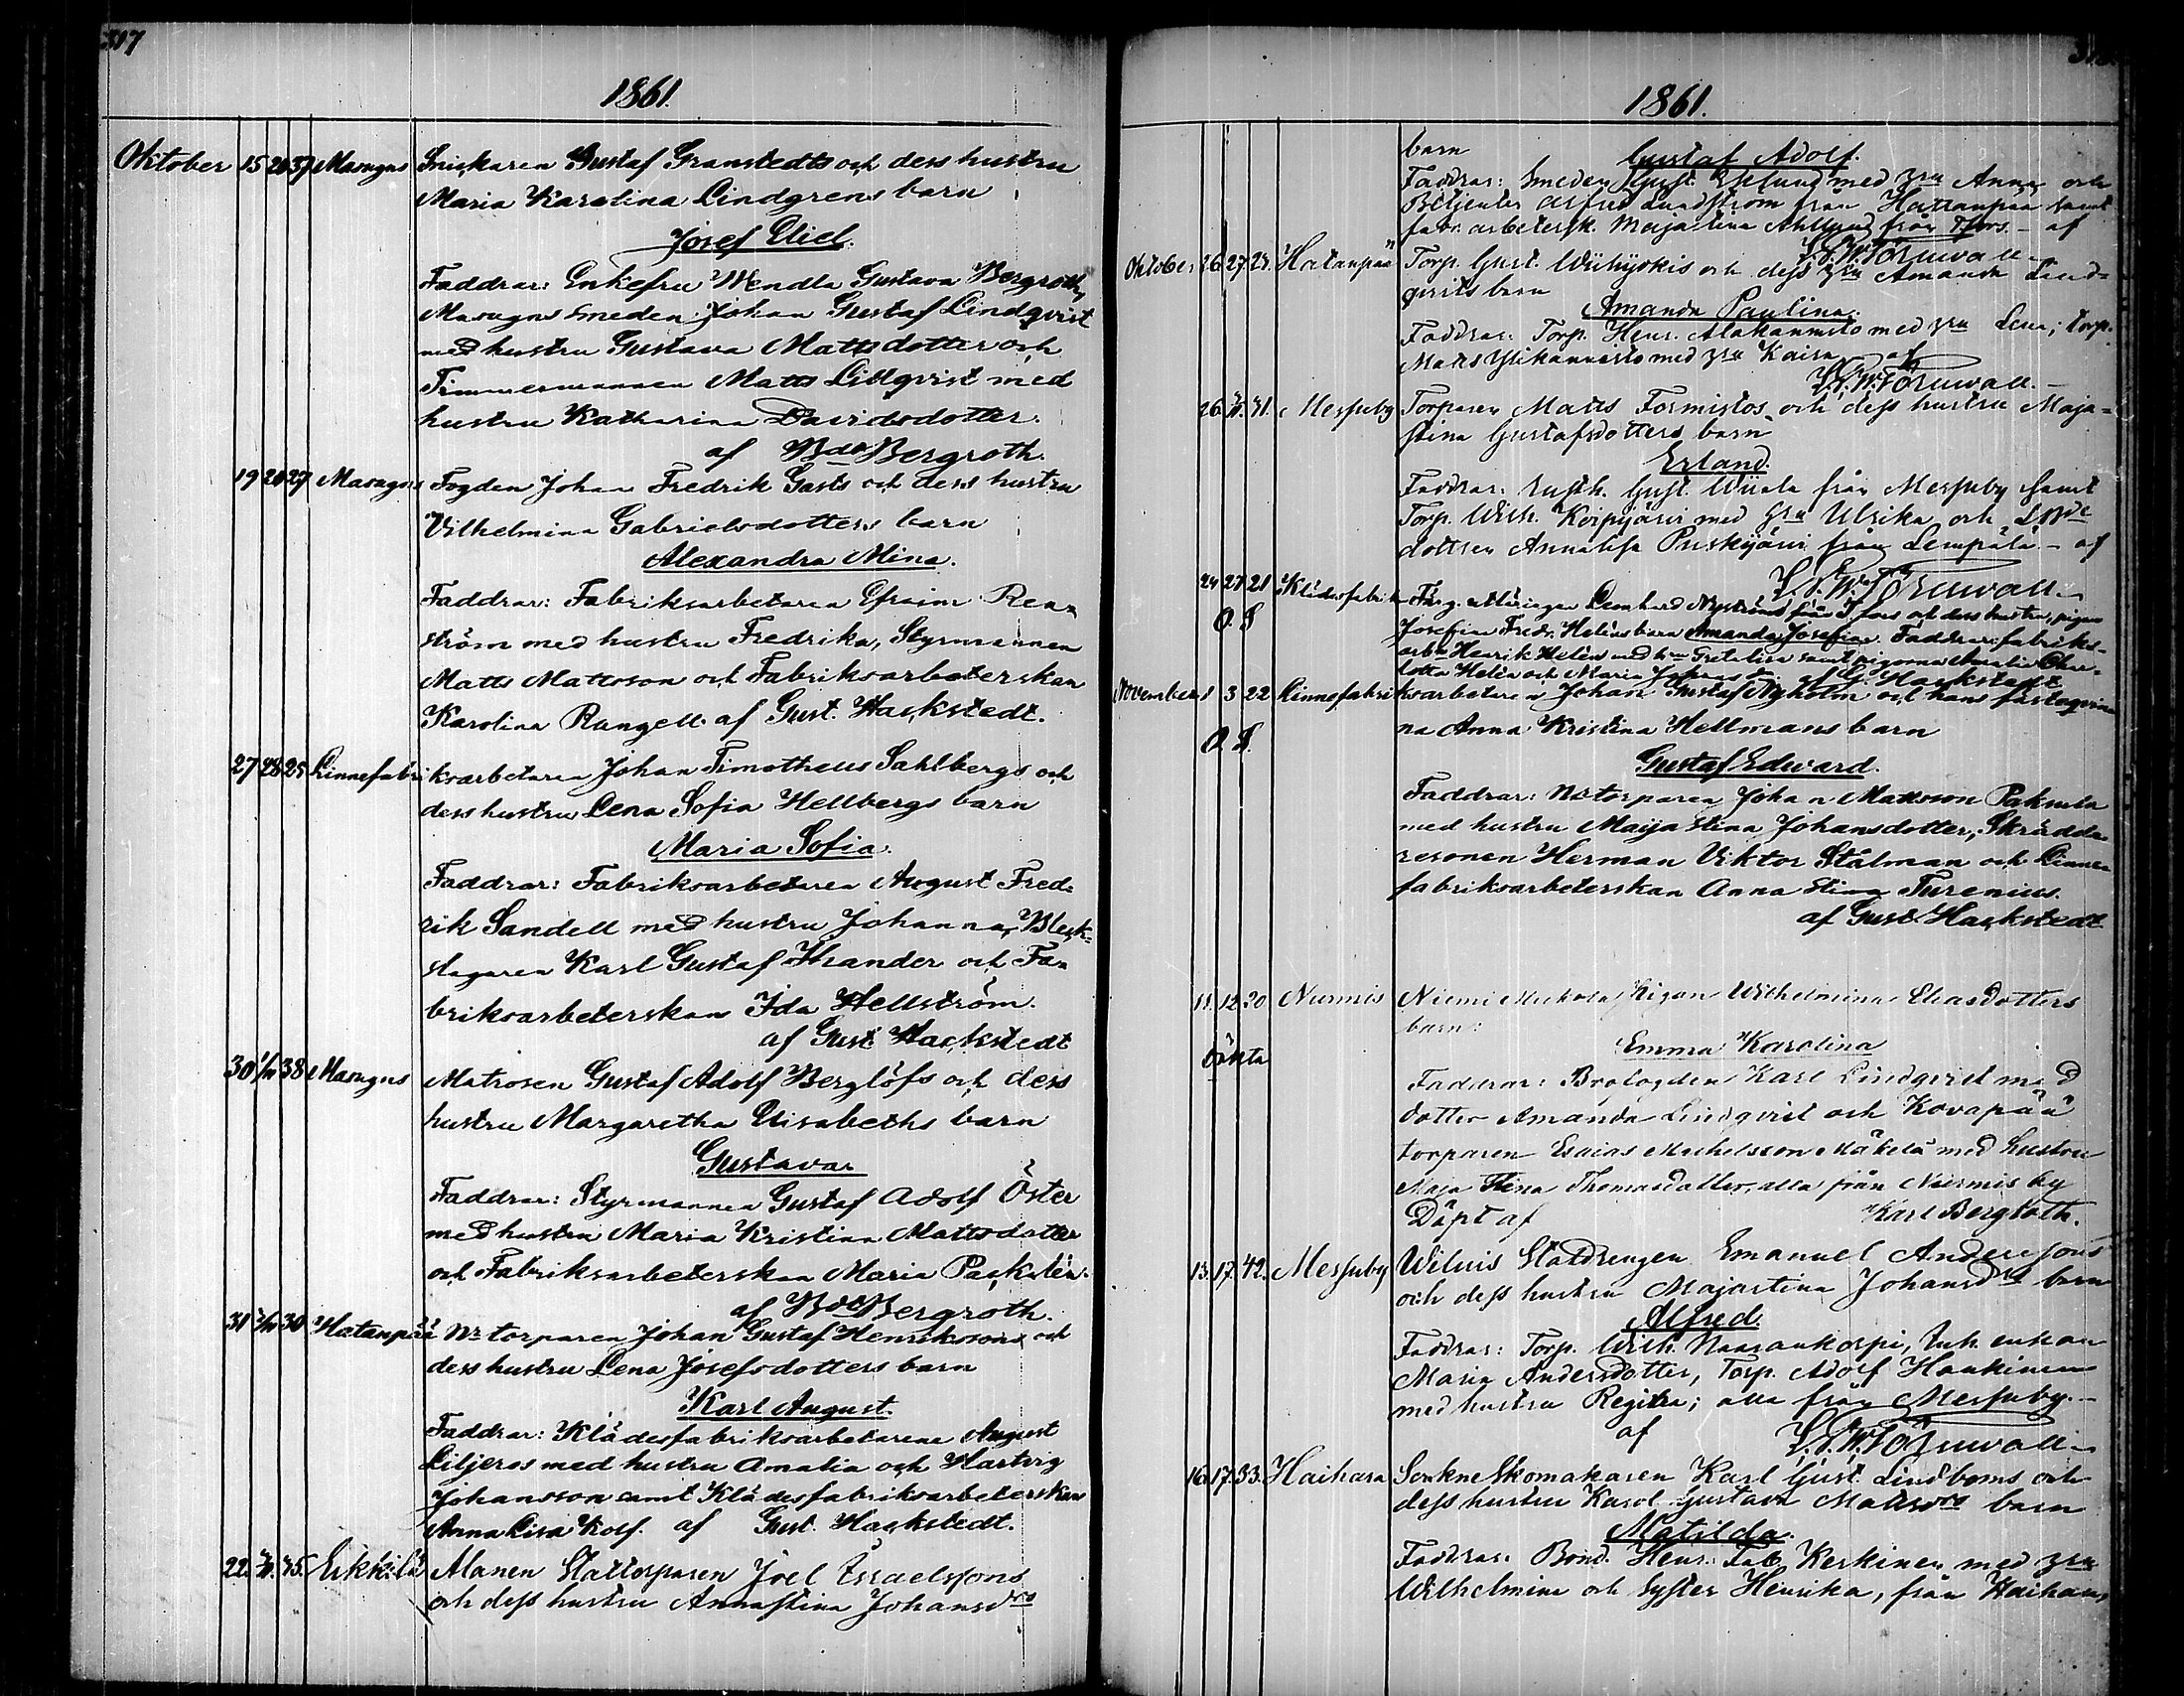 317
1861.
Oktober 15 20 37 Masugns Snickaren Gustaf Granstedts och dess hustru
Maria Karolina Lindgrens barn
Josef Uiel.
Faddrar: Enkefru Wendla Gustava Bergroth,
Masugns smeden Johan Gustaf Lindqvist
med hustru Gustava Mattsdotter och
Timmermannen Matts Lillqvist med
hustru Katharina Davidsdotter.
af Bergroth.
19 20 27 Masugns Fogden Johan Fredrik Gasts och dess hustru
Vilhelmina Gabrielsdotters barn
Alexandra Mina.
Faddrar: Fabriksarbetaren Efraim Ren=
ström med hustru Fredrika, Styrmannen
Matts Mattsson och Fabriksarbeterskan
Karolina Rungell. af Gust. Hackstedt.
27 28 25 Linnefabriksarbetaren Johan Timotheus Sahlbergs och
dess hustru Lena Sofia Hellbergs barn
Maria Sofia.
Faddrar: Fabriksarbetaren August Fred=
rik Sandell med hustru Johanna, Bleck=
slagaren Karl Gustaf Thander och Fa=
briksarbeterskan Ida Hellström.
af Gust. Hackstedt
30 1/11 38 Masugns Matrosen Gustaf Adolf Berglöfs och dess
hustru Margaretha Elisabeths barn
Gustava
Faddrar: Styrmannen Gustaf Adolf Öster
med hustru Maria Kristina Mattsdotter
och Fabriksarbeterskan Maria Packalén.
af Bergroth.
31 30 Hatanpää Ns torparen Johan Gustaf Henrikssons och
dess hustru Lena Josefsdotters barn
Karl August.
Faddrar: Klädesfabriksarbetarene August
Liljeros med hustru Amalia och Hartvig
Johansson samt Klädesfabriksarbeterskan
Anna Lisa Kolf. af Gust. Hackstedt.
22. 45. Erkkilä Alanen Stattorparen Joel Israelssons
och dess hustru Annastina Johansdrs
1861.
barn Gustaf Adolf.
Faddrar: Smeden Gust. Eklund med hru Anna och
Betjenten Alfred Lundström från Hattanpää samt
fabr. arbetersk. Majastina Ahllund från Tfors. – af
Törnwall
Oktober 26. 27. 29. Hatanpää Torp. Gust. Wiihyökis och dess hru Amanda Lind=
qvists barn
Amanda Paulina.
Faddrar: Torp. Henr. Alakannisto med hru Lena; torp.
Matts Ylikannisto med hru Kaisa af
Törnwall. –
26. 41. Messuby Torparen Matts Formistos och dess hustru Maja=
stina Gustafsdotters barn
Erland.
Faddrar: Gust. Wiiala från Messuby samt
Torp. Wilh. Koipijärvi med hru Ulrika och
dottren Annalisa Puskijärvi från Lempälä – af
Törnwall
24 27 21 Klädesfabrik Leonhard Nyströms från T.fors och dess hustru, pigan
O. S Josefina Fredr. Heléns barn Amanda Josefina. Faddrar: fabriks-
arb. Henrik Helén med hru Greta Lisa samt pigorna Amalia Char=
lotta Helén och Maria af G. Hackstedt
November 1 3 22 Linnefabriksarbetaren Johan Gustaf Nyholm och hans fästeqvin
na Anna Kristina Hellmans barn
O. S.
Gustaf Edward.
Faddrar: Ns torparen Johan Mattsson Paksula
med hustru Maija Stina Johansdotter, Skrädda
resonen Herman Viktor Stålman och Linne
fabriksarbeterskan Anna Stina Turenius.
af Gust. Hackstedt.
11. 12 20 Nurmis Niemi Pigan Wilhelmina Eliasdotters
barn:
Oäkta Emma Karolina
Faddrar: Brofogden Karl Lindqvist med
dotter Amanda Lindqvist och Kovapää
torparen Esaias Michelsson Mäkelä med hustru
Maja Stina Thomasdotter, alla från Nurmis by
Döpt af Karl Bergroth.
13. 17. 42. Messuby Wilmis Statdrengen Emanuel Anderssons
och dess hustru Majastina Johansdrs barn
Alfred.
Faddrar: Torp. Wilh. Naarankorpi, Inh. enkan
Maria Andersdotter, Torp. Adolf Hankinen
med hustru Regina; alla från Messuby. –
af Törnwall
16. 17. 33. Haihara Sockneskomakaren Karl Gust. Lindboms och
dess hustru Karol. Gustava Mattsdrs barn
Matilda.
Faddrar: Bond. Henr. Kerkinen med hru
Wilhelmina och syster Henrika, från Haihara,